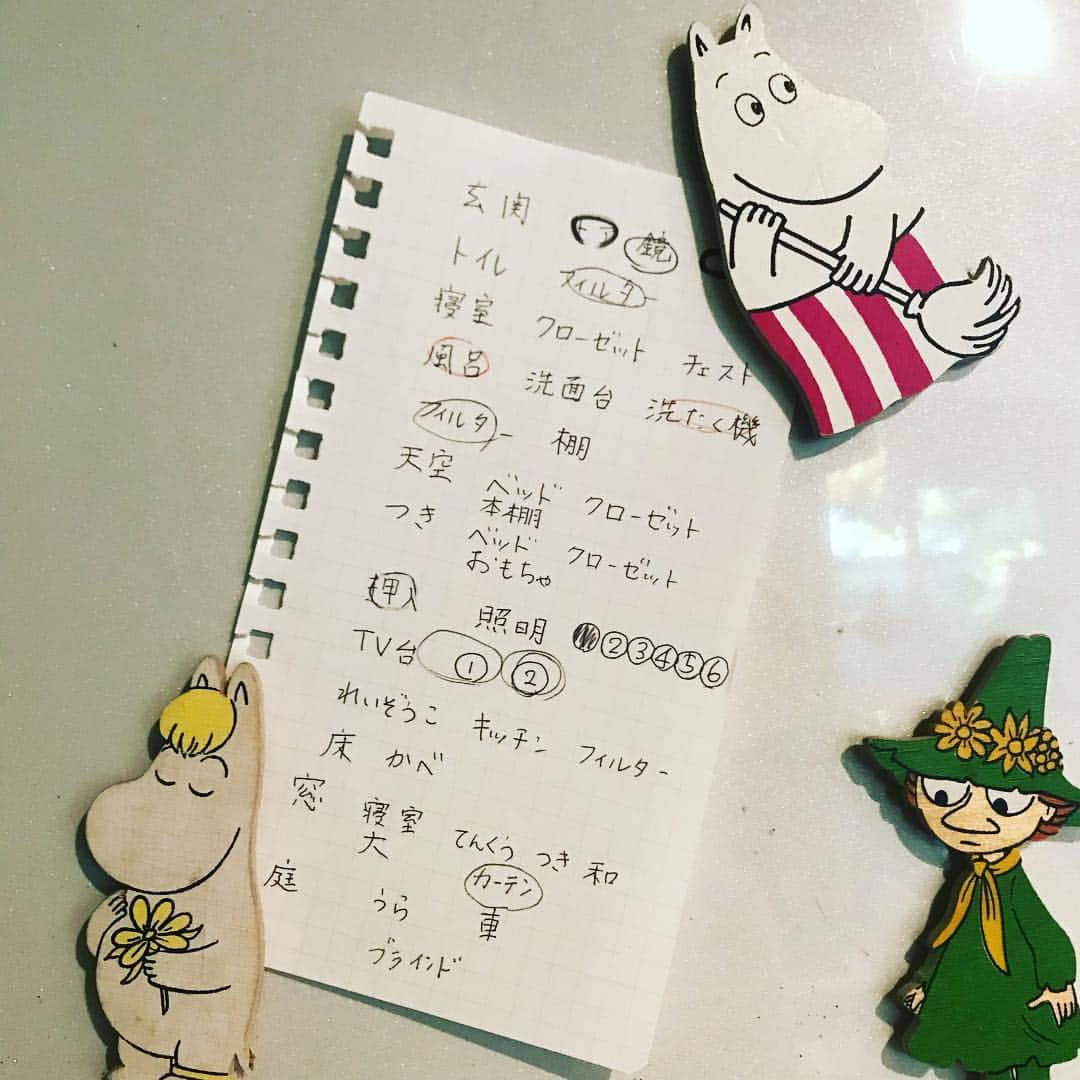 玄関 ドア 鏡
トイレ フィルター
寝室 クローゼット チェスト
風呂 洗面台 洗たく機
フィルター 棚
天空 ベッド クローゼット
本棚
つき ベッド クローゼット
おもちゃ
押入 照明 ②③④⑤⑥
TV台 ① ②
れいぞうこ キッチン フィルター
床 かべ
窓 寝室 てんくう つき 和
大 カーテン
庭 うら 車
ブラインド